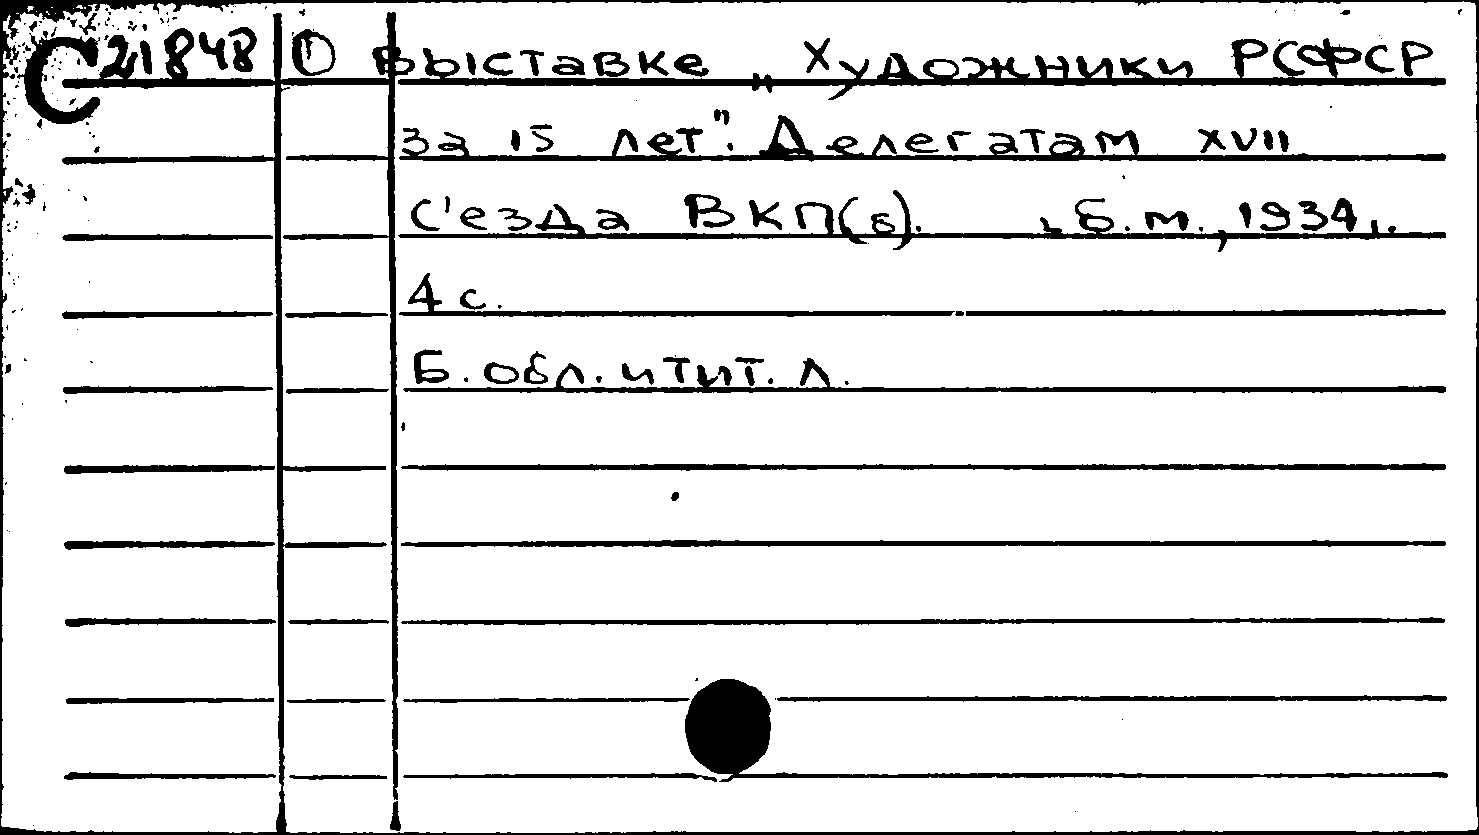 С 21848 О выставке „Художники РСФСР
за 15 лет". Делегатам XVII
с'езда ВКП(б). Б.м., 1934.
4 с.
Б. обл. и тит. л.